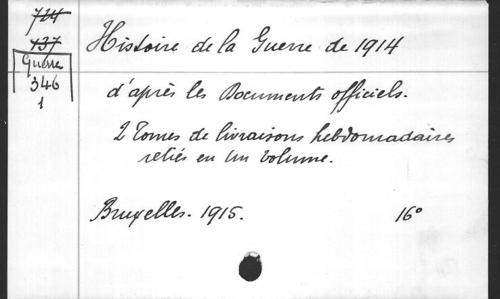 714
737
Guerre
346
1
Histoire de la Guerre de 1914
d'après les Documents officiels.
2 Tomes de livraisons hebdomadaires
reliés en un volume.
Bruxelles. 1915. 16°